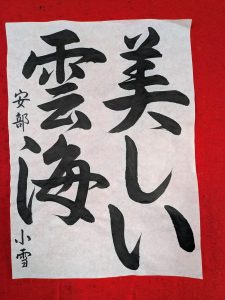 美しい
雲海
安部 小雪